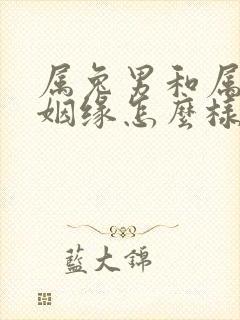 属兔男和属
姻缘怎麼樣
藍大錦